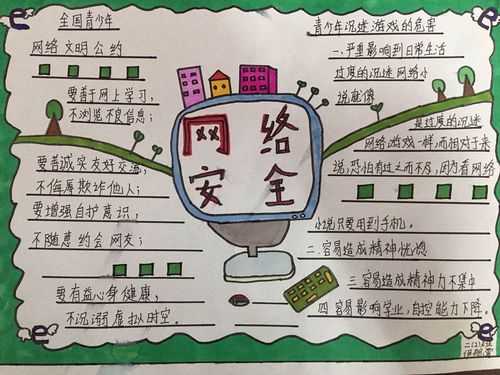 全国青少年
网络文明公约
要善于网上学习，
不浏览不良信息；
要善诚实友好交流，
不侮辱欺诈他人；
要增强自护意识，
不随意约会网友；
要有益心身健康，
不沉溺虚拟时空。
网络
安全
青少年沉迷游戏的危害
一、严重影响到日常生活
过度的沉迷网络小
说就像
是过度的沉迷
网络游戏一样，而相对于来
说，恐怕有过之而不及，因为看网络
小说只要用到手机。
二、容易造成精神恍惚
三、容易造成精神力不集中
四、容易影响学业，自控能力下降。
二(2)班